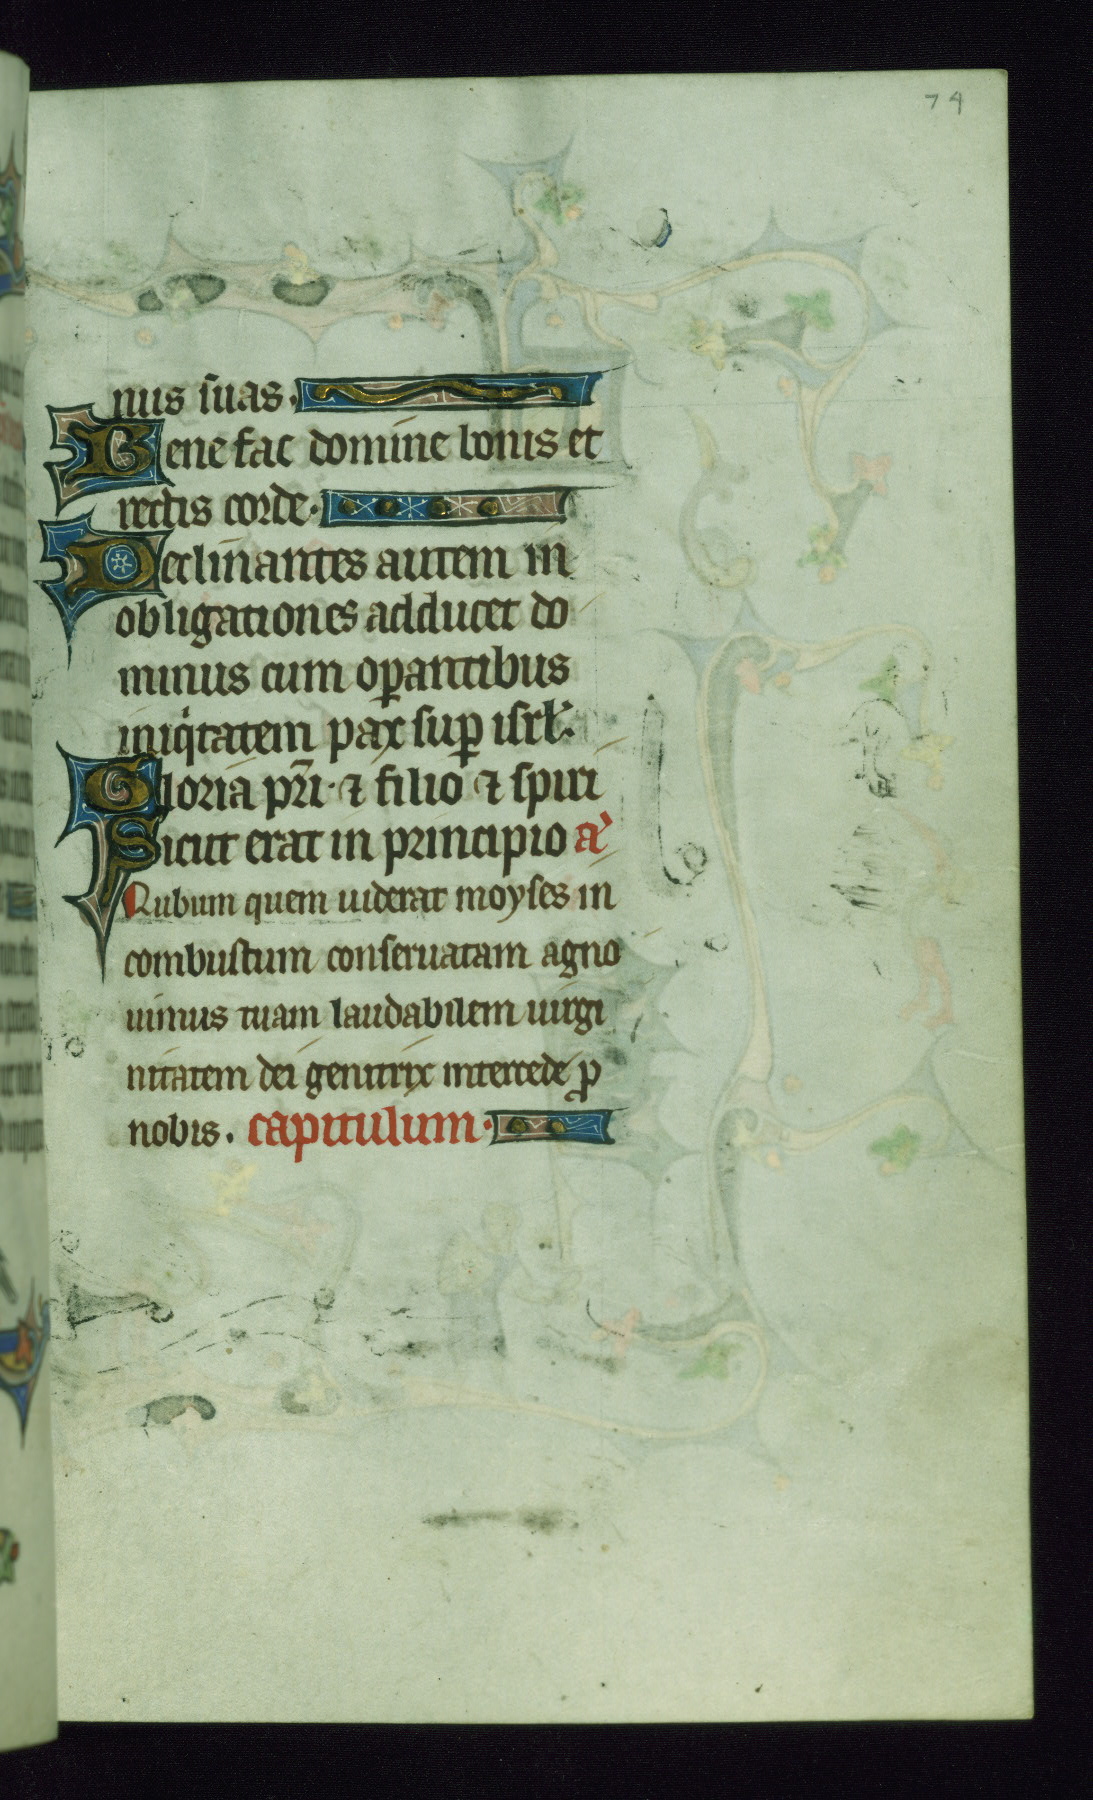 74
nus suas.
Bene fac domine bonis et
rectis corde.
Declinantes autem in
obligationes adducet do
minus cum oꝑantibus
iniqͥtatem pax suꝑ isrł.
Gloria pr̄i. ⁊ filio ⁊ spiri
Sicut erat in principio a᷒
Rubum quem uiderat moyses in
combustum conseruatam agno
uimus tuam laudabilem uirgi
nitatem dei genitrix intercede ꝓ
nobis. capitulum.